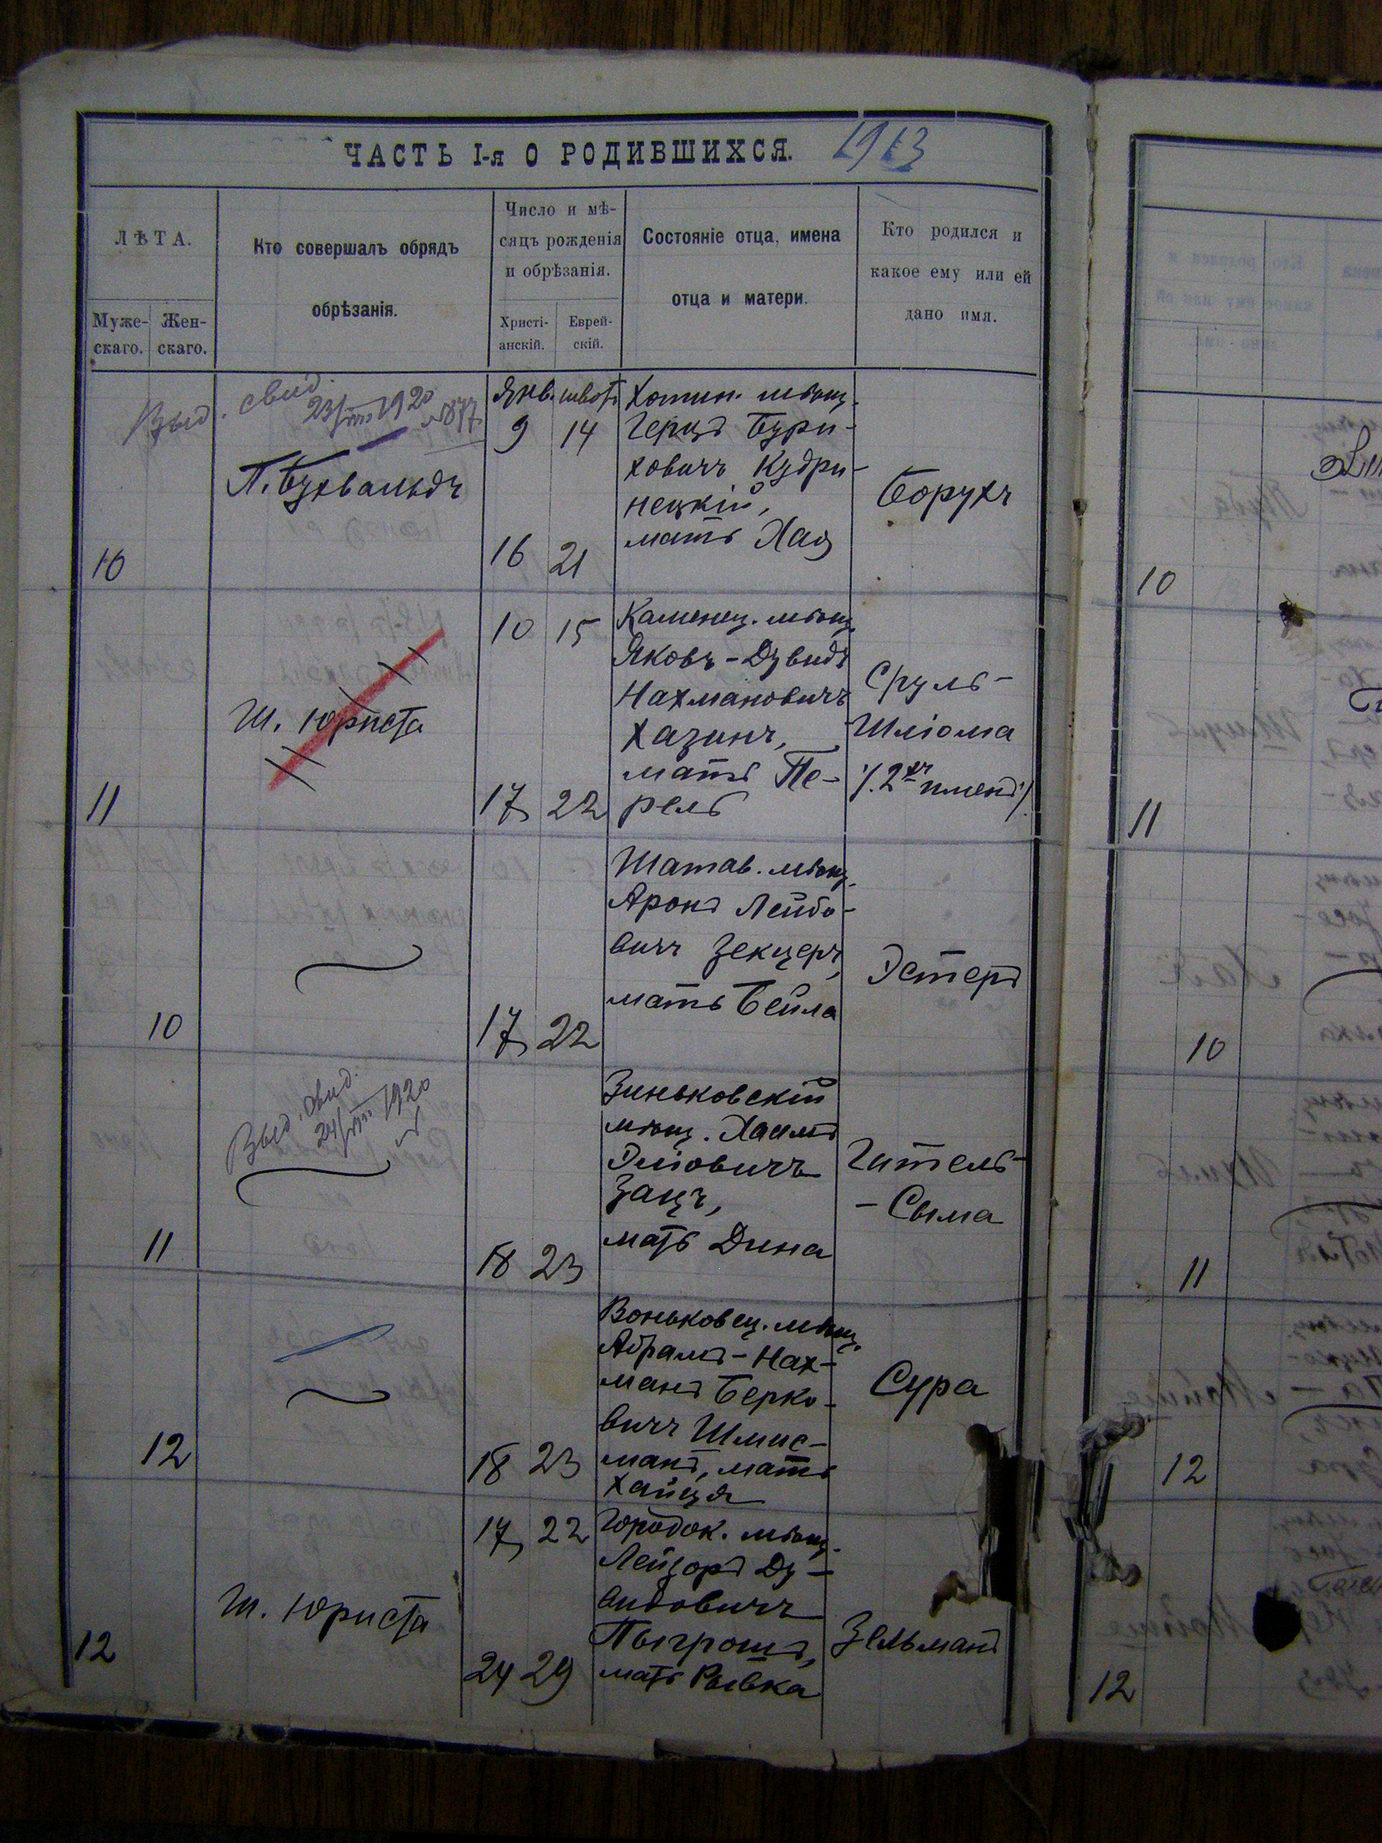 ЧАСТЬ I-я О РОДИВШИХСЯ. 1913
ЛѢТА.
Муже-
скаго.
Жен-
скаго.
Кто совершалъ обрядъ
обрѣзанія.
Число и мѣ-
сяцъ рожденія
и обрѣзанія.
Христі-
анскій.
Еврей-
скій.
Состояніе отца, имена
отца и матери.
Кто родился и
какое ему или ей
дано имя.
Выд. свид.
23/VIII 1920
№877
П. Бухвальдъ
10
Янв. шватъ
9 14
16 21
Хотин. мѣщ.
Герцъ Бури-
ховичъ Кудри-
нецкій,
мать Хая
Борухъ
11
Ш. Юриста
10 15
17 22
Каменец. мѣщ.
Яковъ-Дувидъ
Нахмановичъ
Хазинъ,
мать Пе-
рель
Сруль-
Шліома
/.2хъ именъ./
10
17 22
Шатав. мѣщ.
Аронъ Лейбо-
вичъ Зекцеръ,
мать Бейла
Эстеръ
Выд. свид.
24/VIII 1920
11
18 23
Зиньковскій
мѣщ. Хаимъ
Эліовичъ
Зацъ,
мать Дина
Гитель-
-Сыма
12
18 23
Воньковец. мѣщ.
Абрамъ-Нах-
манъ Берко-
вичъ Шлис-
манъ, мать
Хайця
Сура
12
Ш. Юриста
17 22
24 29
Городок. мѣщ.
Лейзоръ Ду-
видовичъ
Пыгрошъ,
мать Рывка
Зельманъ
10
11
10
11
12
12